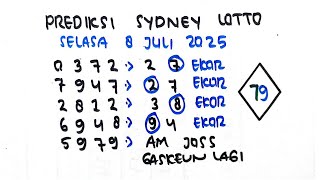 PREDIKSI SYDNEY LOTTO
SELASA 8 JULI 2025
0 3 7 2 :> 2 7 EKOR
7 9 4 7 :> 2 7 EKOR
2 8 1 2 :> 3 8 EKOR
6 9 4 8 :> 9 4 EKOR
5 9 7 9 :> AM JOSS
GASKEUN LAGI
79